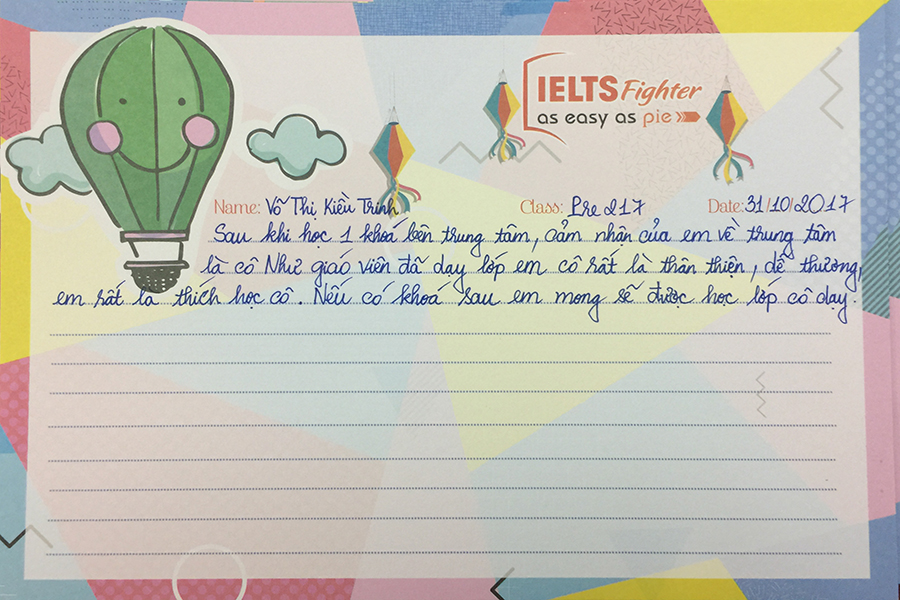 IELTS Fighter
as easy as pie
Name: Võ Thị Kiều Trinh Class: Pre 217 Date: 31/10/2017
Sau khi học 1 khoá bên trung tâm, cảm nhận của em về trung tâm
là cô Như giáo viên đã dạy lớp em cô rất là thân thiện, dễ thương,
em rất là thích học cô. Nếu có khoá sau em mong sẽ được học lớp cô dạy.